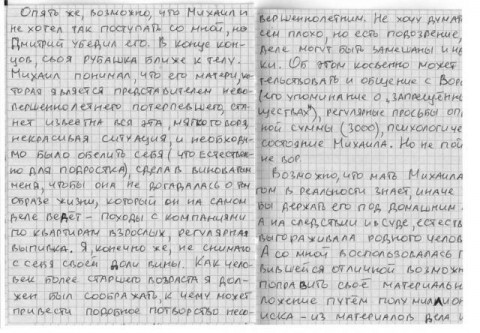 Опять же, возможно, что Михаил и
не хотел так поступать со мной, но
Дмитрий убедил его. В конце кон-
цов, своя рубашка ближе к телу.
Михаил понимал, что его матери, ко-
торая является представителем несо-
вершеннолетнего потерпевшего, ста-
нет известна вся эта, мягко говоря,
некрасивая ситуация, и необходи-
мо было обелить себя (что естествен-
но для подростка), сделав виноватым
меня, чтобы она не догадалась о том
образе жизни, который он на самом
деле ведёт - походы с компаниями
по квартирам взрослых, регулярная
выпивка. Я, конечно же, не снимаю
с себя своей доли вины. Как чело-
век более старшего возраста я дол-
жен был соображать, к чему может
привести подобное потворство несо-
вершеннолетним. Не хочу думат
сем плохо, но есть подозрение,
деле могут быть замешаны и на
ки. Об этом косвенно может
тельствовать и общение с Вор
(его упоминание о "запрещённ
ществах"), регулярные просьбы оп
ной суммы (3000), психологиче
состояние Михаила. Но не пой
не вор.
Возможно, что мать Михаила
том в реальности знает, иначе
бы держать его под домашним
а на следствии и в суде, естест
выгораживала родного челов
А со мной воспользовалась п
вившейся отличной возможн
поправить своё материальн
ложение путём полумиллион
иска - из материалов дела и